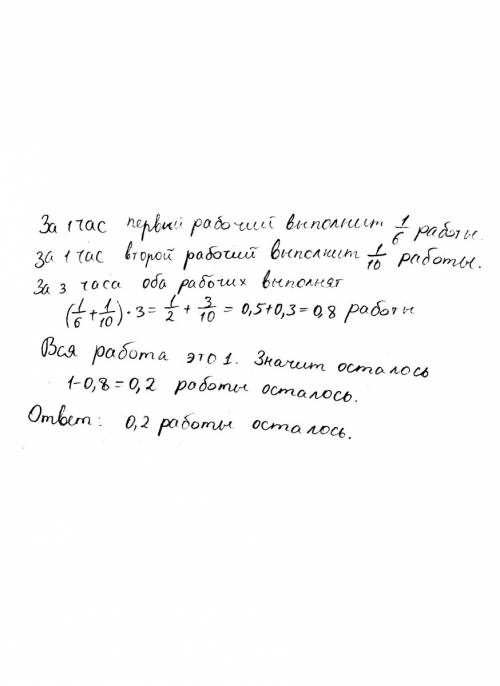 За 1 час первый рабочий выполнит 1/6 работы.
За 1 час второй рабочий выполнит 1/10 работы.
За 3 часа оба рабочих выполнят
(1/6 + 1/10) · 3 = 1/2 + 3/10 = 0,5 + 0,3 = 0,8 работы
Вся работа это 1. Значит осталось
1 - 0,8 = 0,2 работы осталось.
Ответ: 0,2 работы осталось.